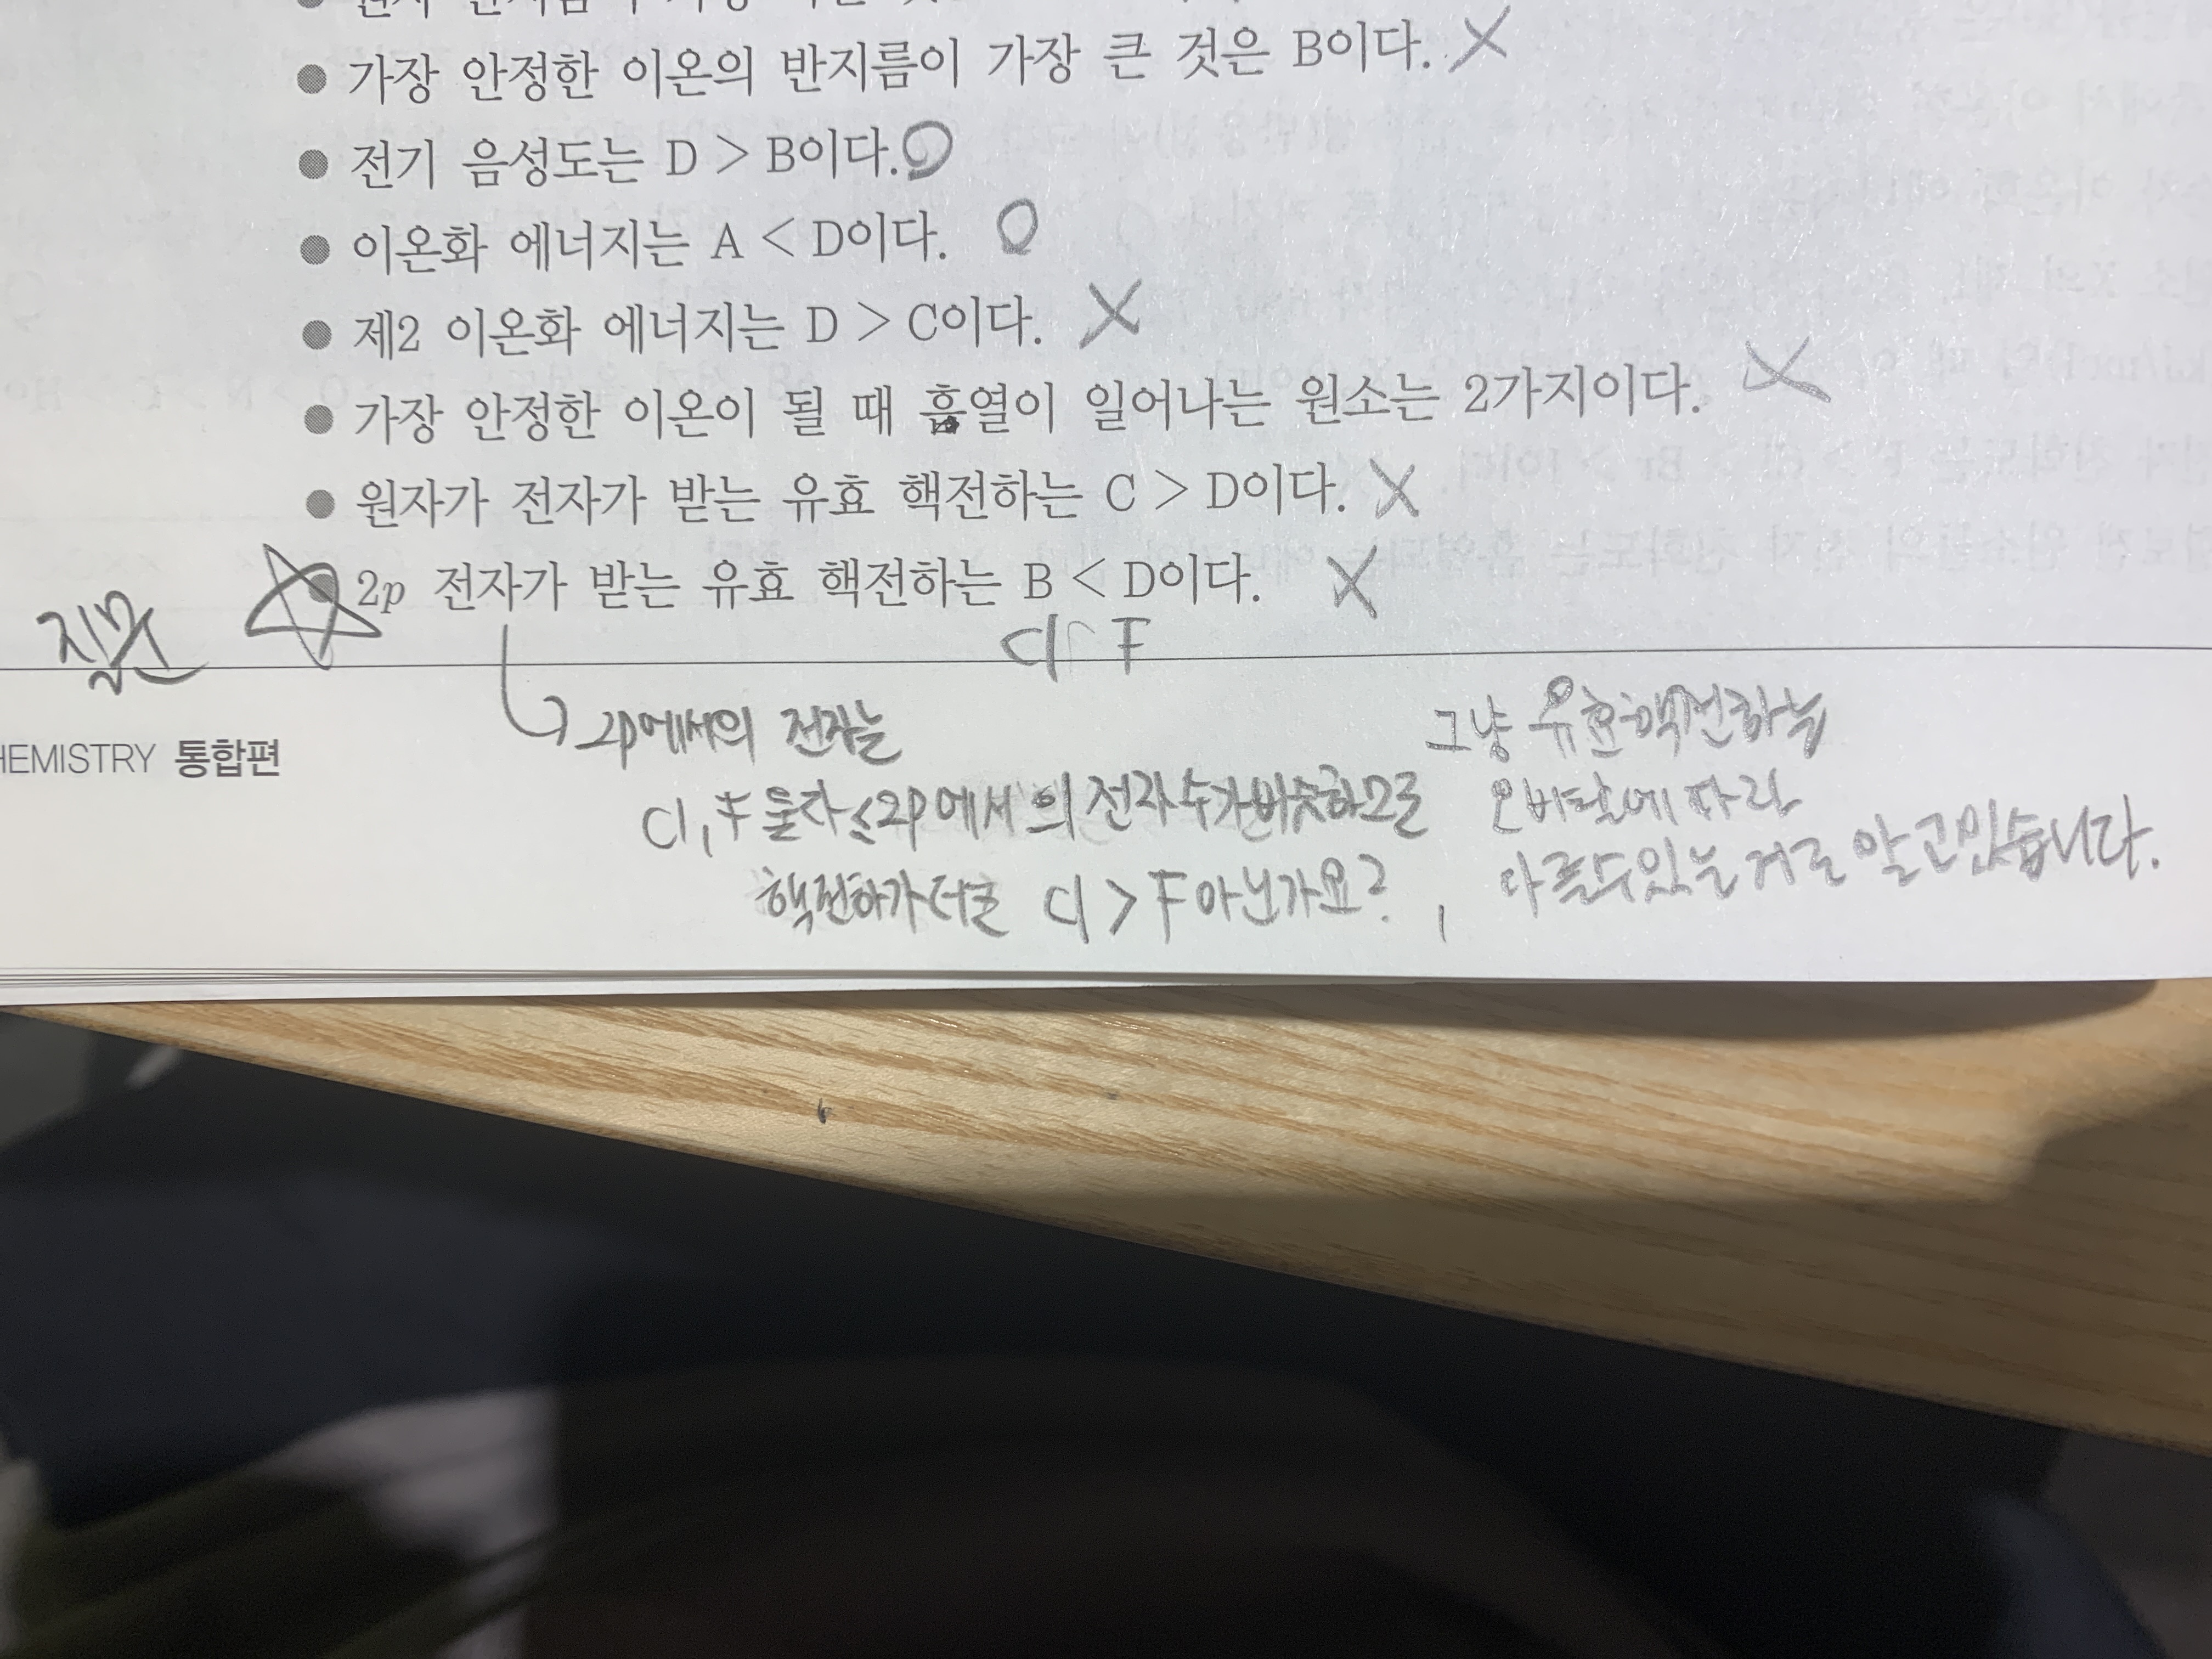 ● 가장 안정한 이온의 반지름이 가장 큰 것은 B이다. X
● 전기 음성도는 D > B이다. O
● 이온화 에너지는 A < D이다. O
● 제2 이온화 에너지는 D > C이다. X
● 가장 안정한 이온이 될 때 흡열이 일어나는 원소는 2가지이다. X
● 원자가 전자가 받는 유효 핵전하는 C > D이다. X
● 2p 전자가 받는 유효 핵전하는 B < D이다. X
질문
Cl F
2p에서의 전자는
Cl, F 둘다 2p에서의 전자수가 비슷하므로
핵전하가 더큰 Cl > F 아닌가요?
그냥 유효핵전하는
오비탈에 따라
다를수있는 거로 알고있습니다.
HEMISTRY 통합편